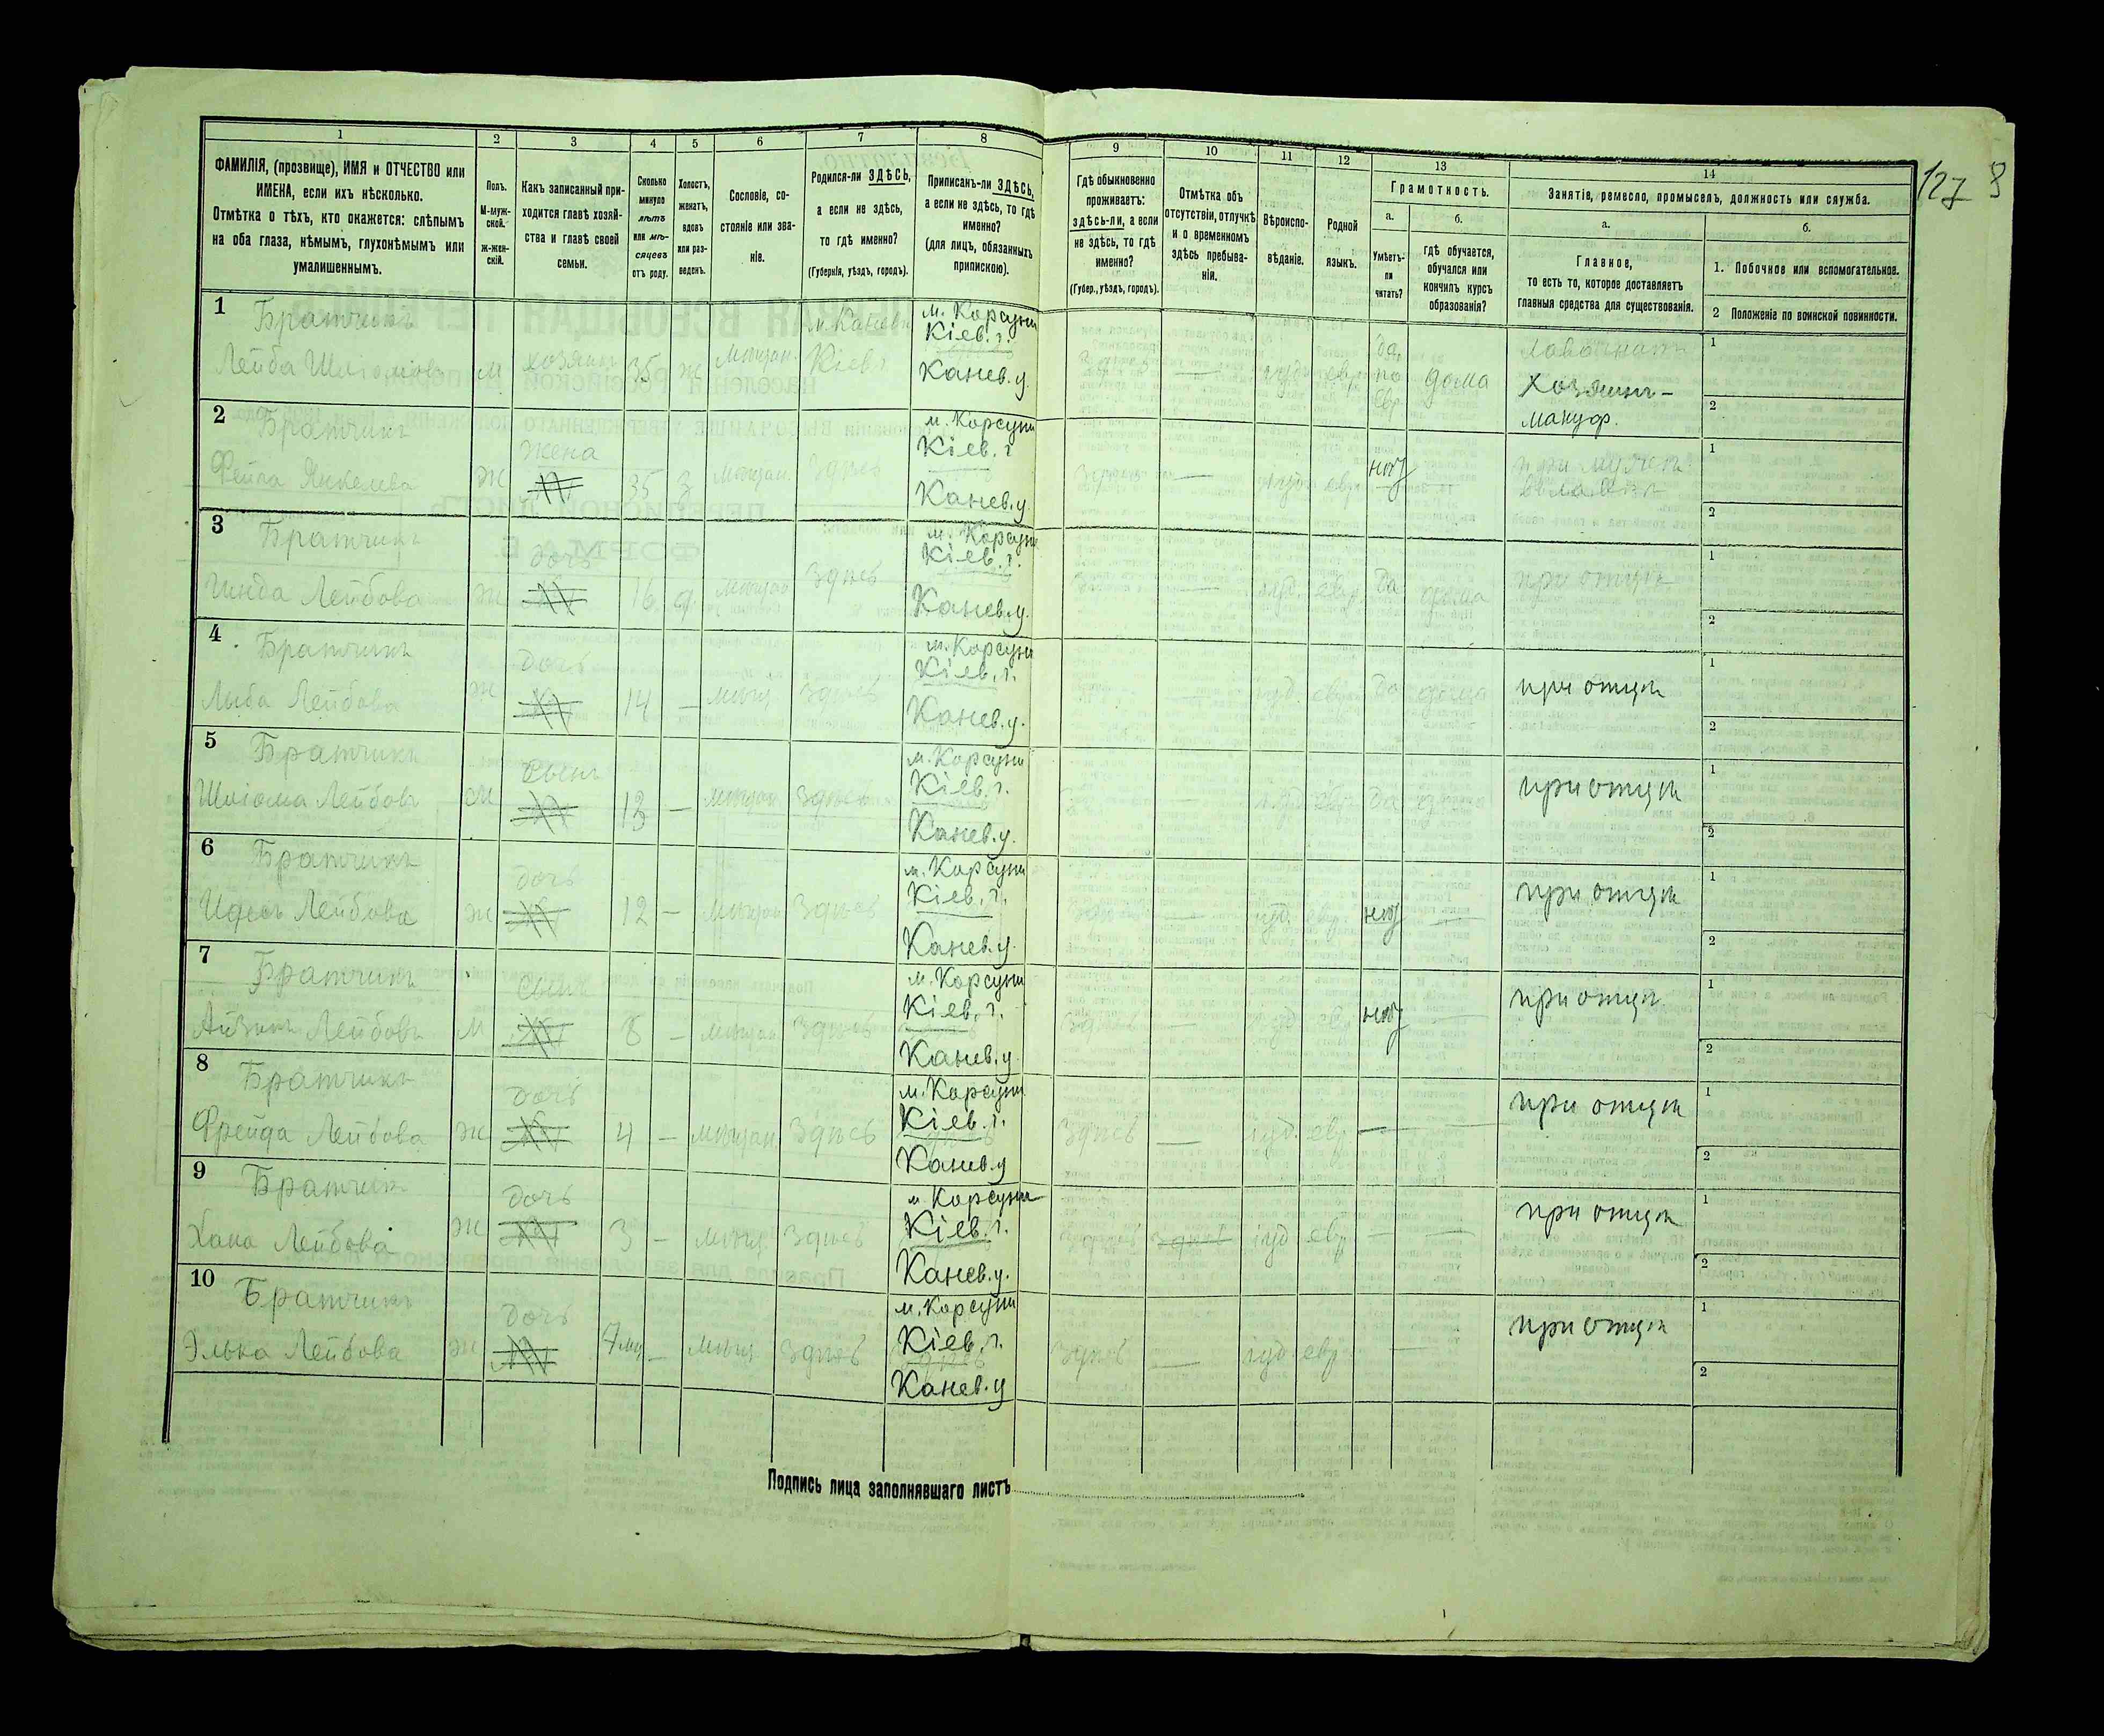 127 8
1 2 3 4 5 6 7 8 9 10 11 12 13 14
ФАМИЛІЯ, (прозвище), ИМЯ и ОТЧЕСТВО или
ИМЕНА, если ихъ нѣсколько.
Отмѣтка о тѣхъ, кто окажется: слѣпымъ
на оба глаза, нѣмымъ, глухонѣмымъ или
умалишеннымъ.
Полъ.
М-муж-
ской.
Ж-жен-
скій.
Какъ записанный при-
ходится главѣ хозяй-
ства и главѣ своей
семьи.
Сколько
минуло
лѣтъ
или мѣ-
сяцевъ
отъ роду.
Холостъ,
женатъ,
вдовъ
или раз-
веденъ.
Сословіе, со-
стояніе или зва-
ніе.
Родился-ли ЗДѢСЬ,
а если не здѣсь,
то гдѣ именно?
(Губернія, уѣздъ, городъ).
Приписанъ-ли ЗДѢСЬ,
а если не здѣсь, то гдѣ
именно?
(для лицъ, обязанныхъ
припискою).
Гдѣ обыкновенно
проживаетъ:
здѣсь-ли, а если
не здѣсь, то гдѣ
именно?
(Губер., уѣздъ, городъ).
Отмѣтка объ
отсутствіи, отлучкѣ
и о временномъ
здѣсь пребыва-
ніи.
Вѣроиспо-
вѣданіе.
Родной
языкъ.
Грамотность.
а.
Умѣетъ-
ли
читать?
б.
гдѣ обучается,
обучался или
кончилъ курсъ
образованія?
Занятіе, ремесло, промыселъ, должность или служба.
а.
Главное,
то есть то, которое доставляетъ
главныя средства для существованія.
б.
1. Побочное или вспомогательное.
2 Положеніе по воинской повинности.
1 Братчикъ м. Канев. м. Корсунь Кіев. г. да, 1
Лейба Шліомовъ м хозяинъ 35 ж мѣщан. Кіев г. Канев. у. — іуд. евр. по евр дома Хозяинъ - 2
мануф.
2 Братчикъ жена м. Корсунь Кіев. г 1
Фейга Янкелева ж 35 з мѣщан. здѣсь Канев. у. здѣсь — іуд. евр. нѣт — при мужѣ 2
3 Братчикъ дочь м. Корсунь Кіев. г. 1
Гинда Лейбова ж 16 д. мѣщан здѣсь Канев. у. — іуд. евр. да дома при отцѣ 2
4 Братчикъ дочь м. Корсунь Кіев. г. 1
Лыба Лейбова ж 14 — мѣщ здѣсь Канев. у. — іуд. евр. да дома при отцѣ 2
5 Братчикъ сынъ м. Корсунь Кіев. г. 1
Шліома Лейбовъ м 13 — мѣщан здѣсь Канев. у. — іуд. евр. да дома при отцѣ 2
6 Братчикъ дочь м. Корсунь Кіев. г. 1
Идесь Лейбова ж 12 — мѣщан здѣсь Канев. у. — іуд. евр. нѣт — при отцѣ 2
7 Братчикъ сынъ м. Корсунь Кіев. г. 1
Айзикъ Лейбовъ м 8 — мѣщан здѣсь Канев. у. здѣсь — іуд. евр. нѣт — при отцѣ 2
8 Братчикъ дочь м. Корсунь Кіев. г. 1
Фрейда Лейбова ж 4 — мѣщан здѣсь Канев. у здѣсь — іуд. евр. — — при отцѣ 2
9 Братчик дочь м. Корсунь Кіев. г. 1
Хана Лейбова ж 3 — мѣщ. здѣсь Канев. у. здѣсь здѣсь іуд. евр. — — при отцѣ 2
10 Братчикъ дочь м. Корсунь Кіев. г. 1
Элька Лейбова ж 7 мц — мѣщ здѣсь Канев. у здѣсь — іуд. евр. — при отцѣ 2
Подпись лица заполнявшаго листъ